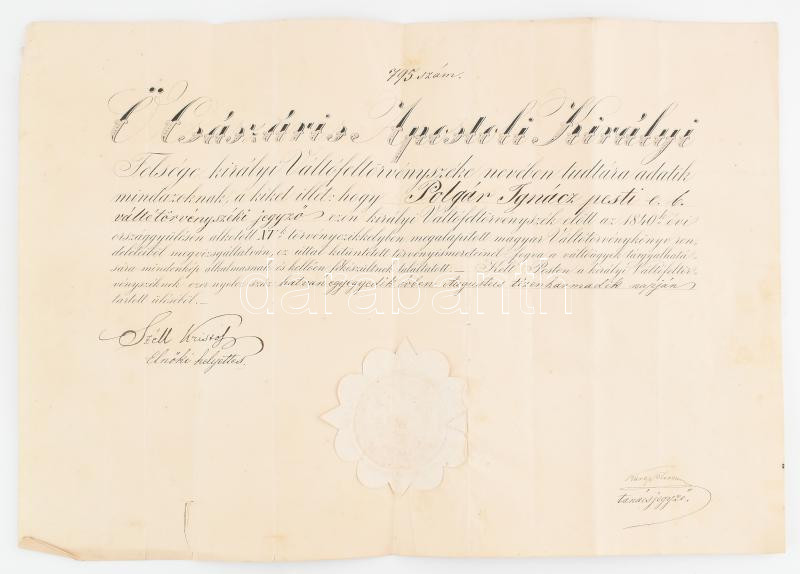 795 szám.
Ő Császári s Apostoli Királyi
Felsége királyi Váltófeltörvényszéke nevében tudtára adatik
mindazoknak, a kiket illet: hogy Polgár Ignácz pesti e. b.
váltótörvényszéki jegyző ezen királyi Váltófeltörvényszék előtt az 1840k évi
országgyülésen alkotott XVk törvényczikkelyben megalapított magyar Váltótörvénykönyv ren-
deleteiből megvizsgáltatván, ez által kitüntetett törvényismereteinél fogva a váltóügyek tárgyalhatá-
sára mindenkép alkalmasnak és kellően felkészültnek találtatott. — Kelt Pesten a királyi Váltófeltör-
vényszéknek ezer nyolcz száz hatvanegyegyedik évben Augustus tizenharmadik napján
tartott üléséből. —
Széll Kristóf
Elnöki helyettes.
tanácsjegyző.
darabanth